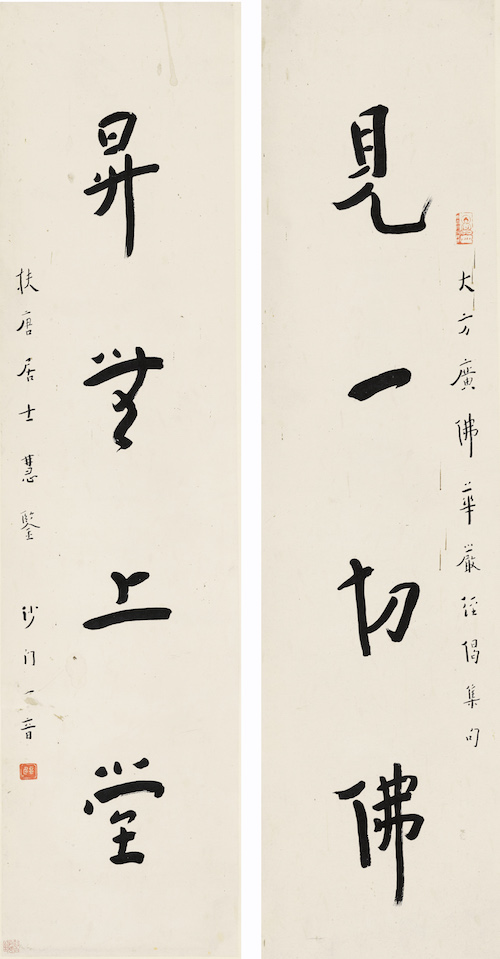 大方廣佛華嚴經偈集句
見一切佛
昇無上堂
扶唐居士慧鑒 沙门一音